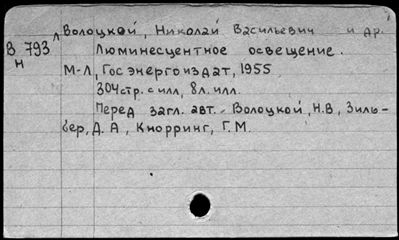 Волоцкой, Николай Васильевич и др.
В 793 л Люминесцентное освещение.
Н
М-Л, Госэнергоиздат, 1955
304 стр. с илл, 8л. илл.
Перед загл. авт. - Волоцкой, Н.В, Зиль-
бер, Д. А, Кнорринг, Г. М.